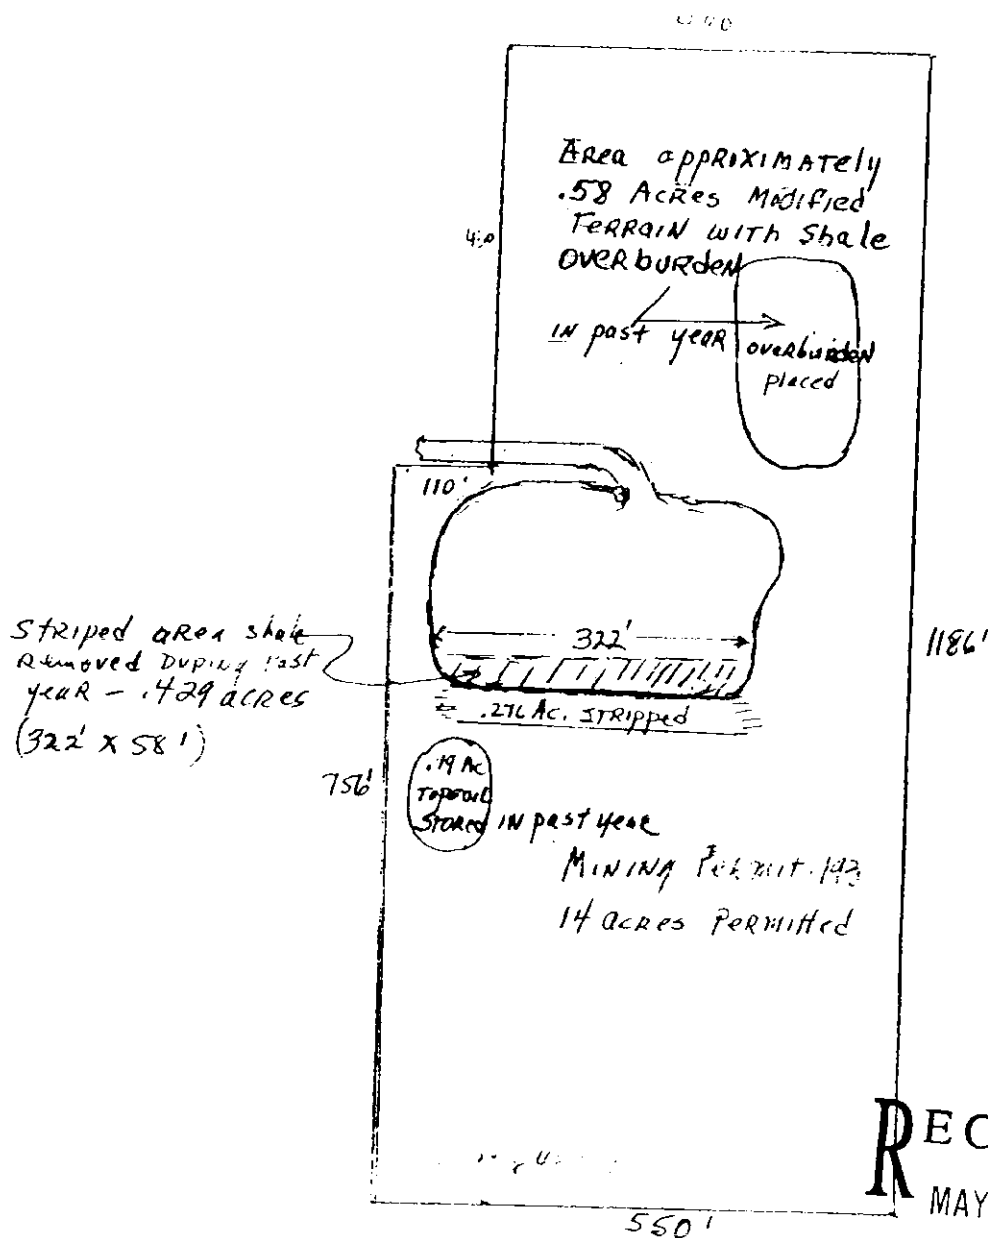 Area appRIXIMATEly
.58 Acres Modified
TERRAIN WITH Shale
OVERBURDEN
IN past year overburden
placed
110'
Striped area shale
Removed During Past
year - .429 acres
(322' X 58')
322'
1186'
.276 Ac. STRIPPED
756'
.19 Ac
Topsoil
Stored IN past year
MINING Permit
14 acres Permitted
REC
MAY
550'